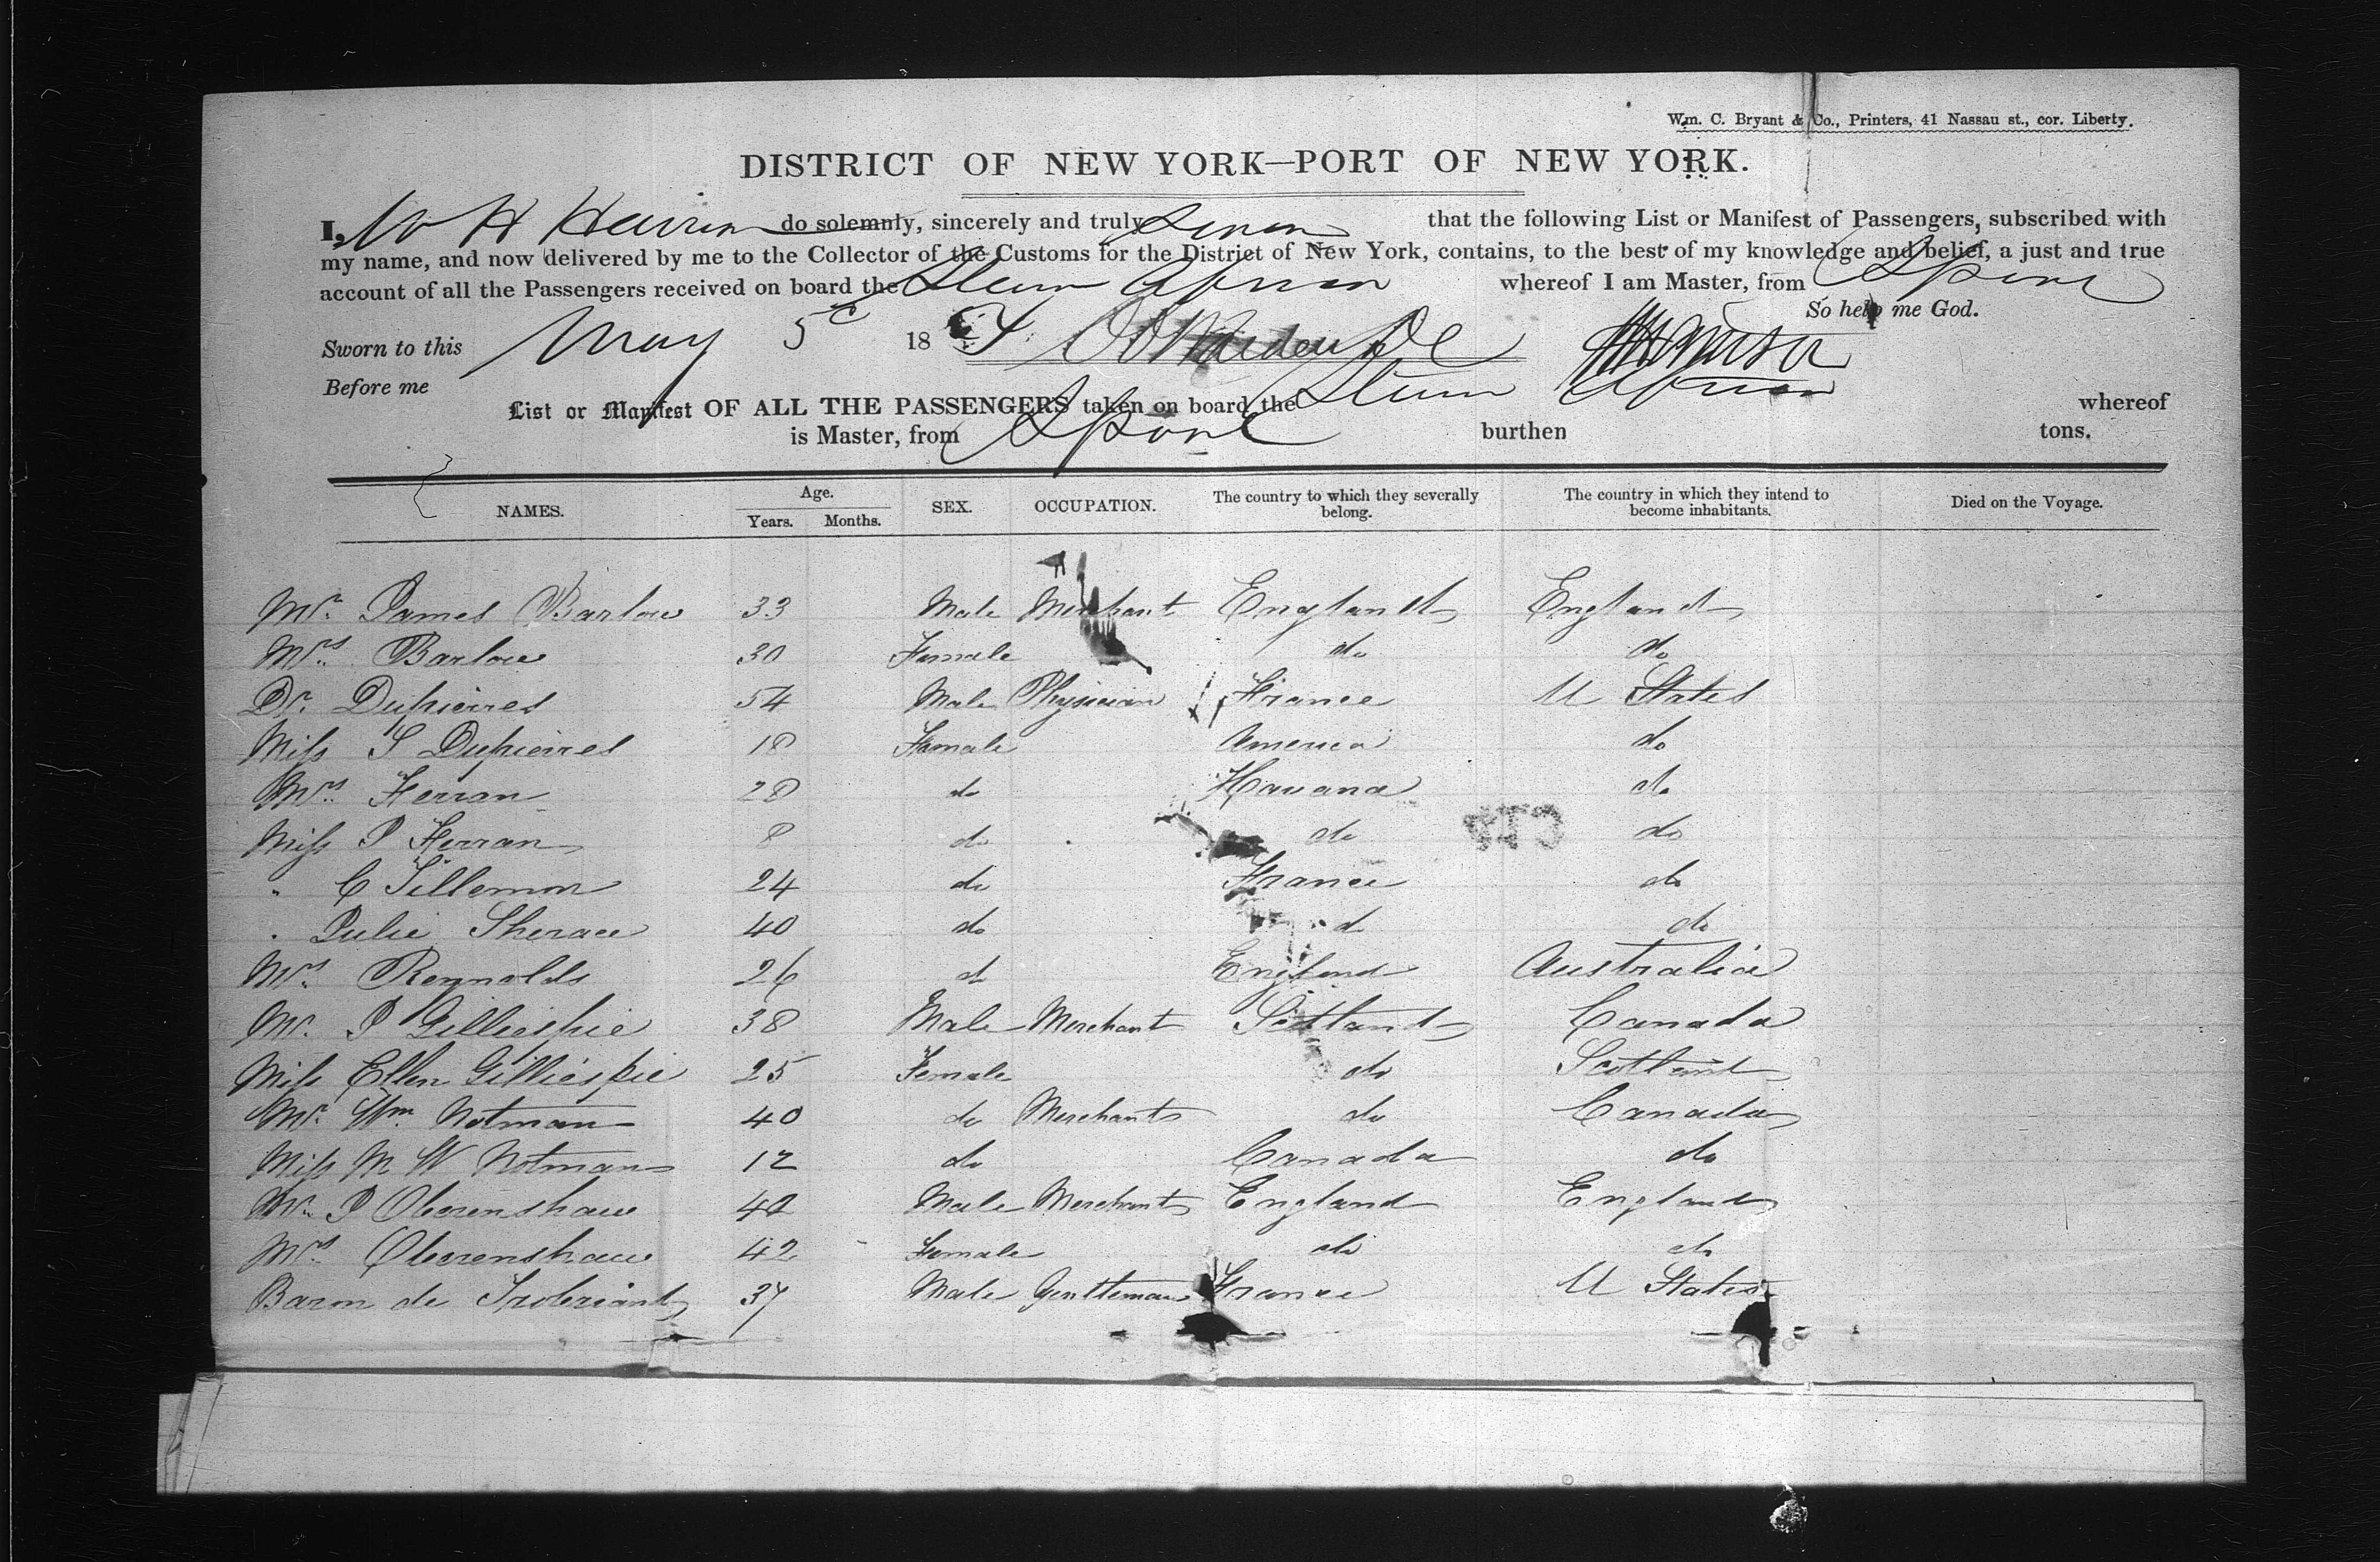 Wm. C. Bryant & Co., Printers, 41 Nassau st., cor. Liberty.
DISTRICT OF NEW YORK—PORT OF NEW YORK.
I, W H Harrison do solemnly, sincerely and truly swear that the following List or Manifest of Passengers, subscribed with
my name, and now delivered by me to the Collector of the Customs for the District of New York, contains, to the best of my knowledge and belief, a just and true
account of all the Passengers received on board the whereof I am Master, from L pool
So help me God.
Sworn to this May 5 18 4
Before me
List or Manifest OF ALL THE PASSENGERS taken on board the whereof
is Master, from L pool burthen tons.
NAMES. Age. Years. Months. SEX. OCCUPATION. The country to which they severally belong. The country in which they intend to become inhabitants. Died on the Voyage.
Mr. James Barlow 33 Male Merchant England England
Mrs. Barlow 30 Female do do
Dr. Dupierres 54 Male Physician France U States
Miss S Dupierres 18 Female America do
Mrs. Herran 28 do Havana do
Miss P Herran 8 do do do
" C Tillemon 24 do France do
" Julie 40 do do do
Mrs. Reynolds 26 do England Australia
Mr. J Gilliespie 38 Male Merchant Scotland Canada
Miss Ellen Gilliespie 25 Female do Scotland
Mr. Wm. Notman 40 do Merchant do Canada
Miss M W Notman 12 do Canada do
Mr. J Oberenshaw 42 Male Merchant England England
Mrs. Oberenshaw 42 Female do do
Baron de Trobriand 37 Male Gentleman France U States